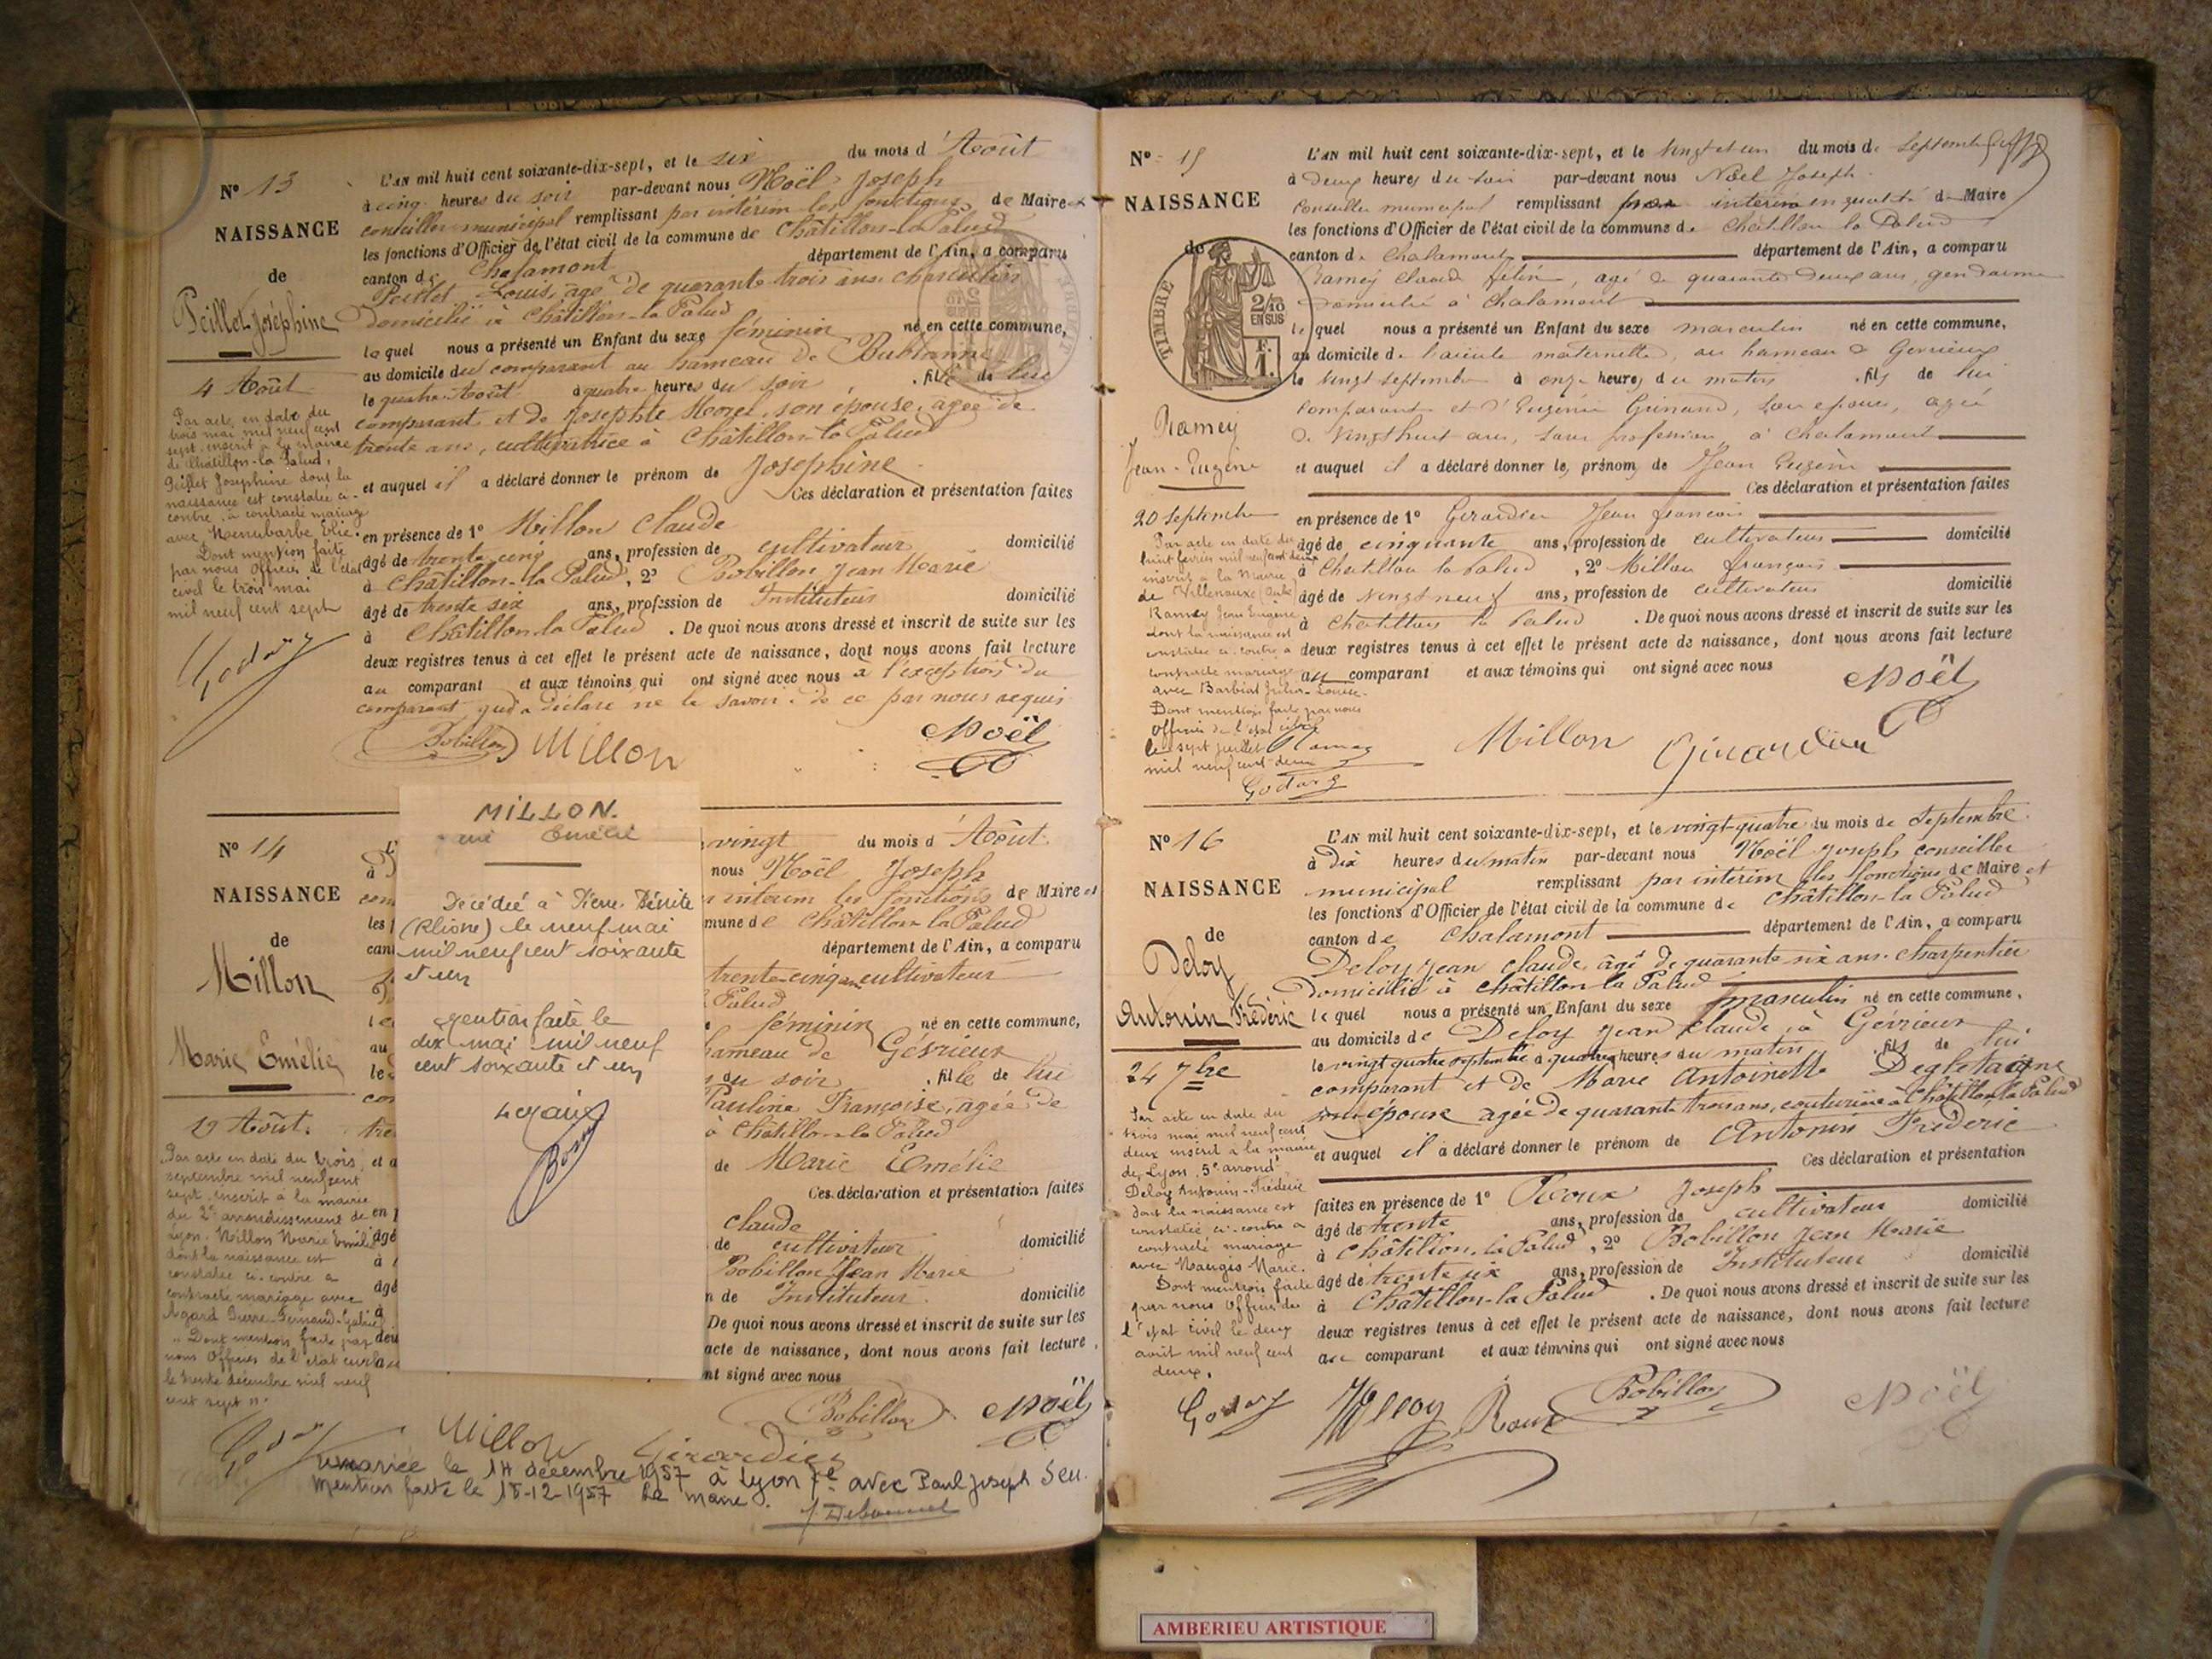 N° 13
NAISSANCE
de
Peillet Joséphine
4 Août
Par acte en date du
trois mai mil neuf cent
sept, inscrit à la mairie
de Châtillon-la Palud,
Peillet Josephine dont la
naissance est constatée ci-
contre, a contracté mariage
avec Elie.
Dont mention faite
par nous Officier de l'état
civil le trois mai
mil neuf cent sept
Godary
L'AN mil huit cent soixante-dix-sept, et le six du mois d'Août
à cinq heures du soir par-devant nous Noël Joseph
conseiller municipal remplissant par intérim les fonctions de Maire et
les fonctions d'Officier de l'état civil de la commune de Châtillon-la Palud
canton de Chalamont département de l'Ain, a comparu
Peillet Louis, âgé de quarante trois ans
domicilié à Châtillon-la Palud
lequel nous a présenté un Enfant du sexe féminin né en cette commune,
au domicile du comparant au hameau de
le quatre Août à quatre heures du soir, fille de lui
comparant et de Josephte Morel, son épouse, agée de
trente ans, cultivatrice à Châtillon-la Palud
et auquel il a déclaré donner le prénom de Joséphine
Ces déclaration et présentation faites
en présence de 1° Millon Claude
âgé de trente cinq ans, profession de cultivateur domicilié
à Châtillon-la Palud, 2° Bobillon Jean Marie
âgé de trente six ans, profession de Instituteur domicilié
à Châtillon-la Palud. De quoi nous avons dressé et inscrit de suite sur les
deux registres tenus à cet effet le présent acte de naissance, dont nous avons fait lecture
au comparant et aux témoins qui ont signé avec nous à l'exception du
comparant qui a déclaré ne le savoir de ce par nous requis
Bobillon Millon Noël
N° 14
NAISSANCE
de
Millon
Marie Emélie
19 Août.
Par acte en date du trois
septembre mil neuf cent
sept, inscrit à la mairie
du 2e arrondissement de
Lyon, Millon Marie Emélie
dont la naissance est
constatée ci-contre a
contracté mariage avec
Agard Pierre-Fernand-Gabriel
"Dont mention faite par
nous Officier de l'état civil
le trente décembre mil neuf
cent sept".
MILLON.
Emélie
Décédée à Pierre-Bénite
(Rhône) le neuf mai
mil neuf cent soixante
et un
Mention faite le
dix mai mil neuf
cent soixante et un
Le Maire
vingt du mois d'Août.
nous Noël Joseph
interim les fonctions de Maire et
mune de Châtillon-la Palud
département de l'Ain, a comparu
trente-cinq ans cultivateur
Palud
féminin né en cette commune,
hameau de Gévrieux
du soir, fille de lui
Pauline Françoise, agée de
à Châtillon-la Palud
de Marie Emélie
Ces déclaration et présentation faites
Claude
de cultivateur domicilié
Bobillon Jean Marie
n de Instituteur domicilié
De quoi nous avons dressé et inscrit de suite sur les
acte de naissance, dont nous avons fait lecture
nt signé avec nous
Bobillon Noël
Godary Millon Girardier
remariée le 14 décembre 1957 à Lyon 7e avec Paul Joseph Seu.
Mention faite le 18-12-1957 Le Maire.
N° 15
NAISSANCE
de
TIMBRE
2/10
EN SUS
F.
1.
Ramey
Jean-Eugène
20 Septembre
Par acte en date du
huit février mil neuf cent deux
inscrit à la Mairie
de Villenauxe (Aube)
Ramey Jean Eugène
dont la naissance est
constatée ci-contre a
contracté mariage
avec Barbiat Julia-Louise.
Dont mention faite par nous
Officier de l'état civil
le sept juillet
mil neuf cent deux
Godary
L'AN mil huit cent soixante-dix-sept, et le vingt et un du mois de Septembre
à deux heures du soir par-devant nous Noël Joseph
Conseiller municipal remplissant par intérim en qualité de Maire
les fonctions d'Officier de l'état civil de la commune de Châtillon la Palud
canton de Chalamont département de l'Ain, a comparu
Ramey Claude, agé de quarante deux ans, gendarme
domicilié à Chalamont
lequel nous a présenté un Enfant du sexe masculin né en cette commune,
au domicile de l'aïeule maternelle, au hameau de Gevrieux
le vingt septembre à onze heures du matin, fils de lui
comparant et d'Eugénie, son épouse, agée
de vingt huit ans, sans profession, à Chalamont
et auquel il a déclaré donner le prénom de Jean Eugène
Ces déclaration et présentation faites
en présence de 1° Girardier Jean François
âgé de cinquante ans, profession de cultivateur domicilié
à Chatillon la Palud, 2° Millon François
âgé de vingt neuf ans, profession de cultivateur domicilié
à Chatillon la Palud. De quoi nous avons dressé et inscrit de suite sur les
deux registres tenus à cet effet le présent acte de naissance, dont nous avons fait lecture
au comparant et aux témoins qui ont signé avec nous
Noël
Ramey Millon Girardier
N° 16
NAISSANCE
de
Deloy
Antonin Frédéric
24 7bre
Par acte en date du
trois mai mil neuf cent
deux inscrit à la mairie
de Lyon, 5e arrond.
Deloy Antonin-Frédéric
dont la naissance est
constatée ci-contre a
contracté mariage
avec Mauges Marie.
Dont mention faite
par nous Officier de
l'état civil le deux
août mil neuf cent
deux.
Godary
L'AN mil huit cent soixante-dix-sept, et le vingt-quatre du mois de Septembre
à dix heures du matin par-devant nous Noël Joseph conseiller
municipal remplissant par intérim les fonctions de Maire et
les fonctions d'Officier de l'état civil de la commune de Châtillon-la Palud
canton de Chalamont département de l'Ain, a comparu
Deloy Jean Claude, âgé de quarante six ans, charpentier
domicilié à Châtillon-la Palud
lequel nous a présenté un Enfant du sexe masculin né en cette commune,
au domicile de Deloy Jean Claude, à Gévrieux
le vingt quatre septembre à quatre heures du matin, fils de lui
comparant et de Marie Antoinette
son épouse agée de quarante trois ans, couturière à Châtillon-la Palud
et auquel il a déclaré donner le prénom de Antonin Frédéric
Ces déclaration et présentation
faites en présence de 1° Roux Joseph
âgé de trente ans, profession de cultivateur domicilié
à Châtillon-la Palud, 2° Bobillon Jean Marie
âgé de trente six ans, profession de Instituteur domicilié
à Châtillon-la Palud. De quoi nous avons dressé et inscrit de suite sur les
deux registres tenus à cet effet le présent acte de naissance, dont nous avons fait lecture
au comparant et aux témoins qui ont signé avec nous
Delloy Roux Bobillon Noël
AMBERIEU ARTISTIQUE